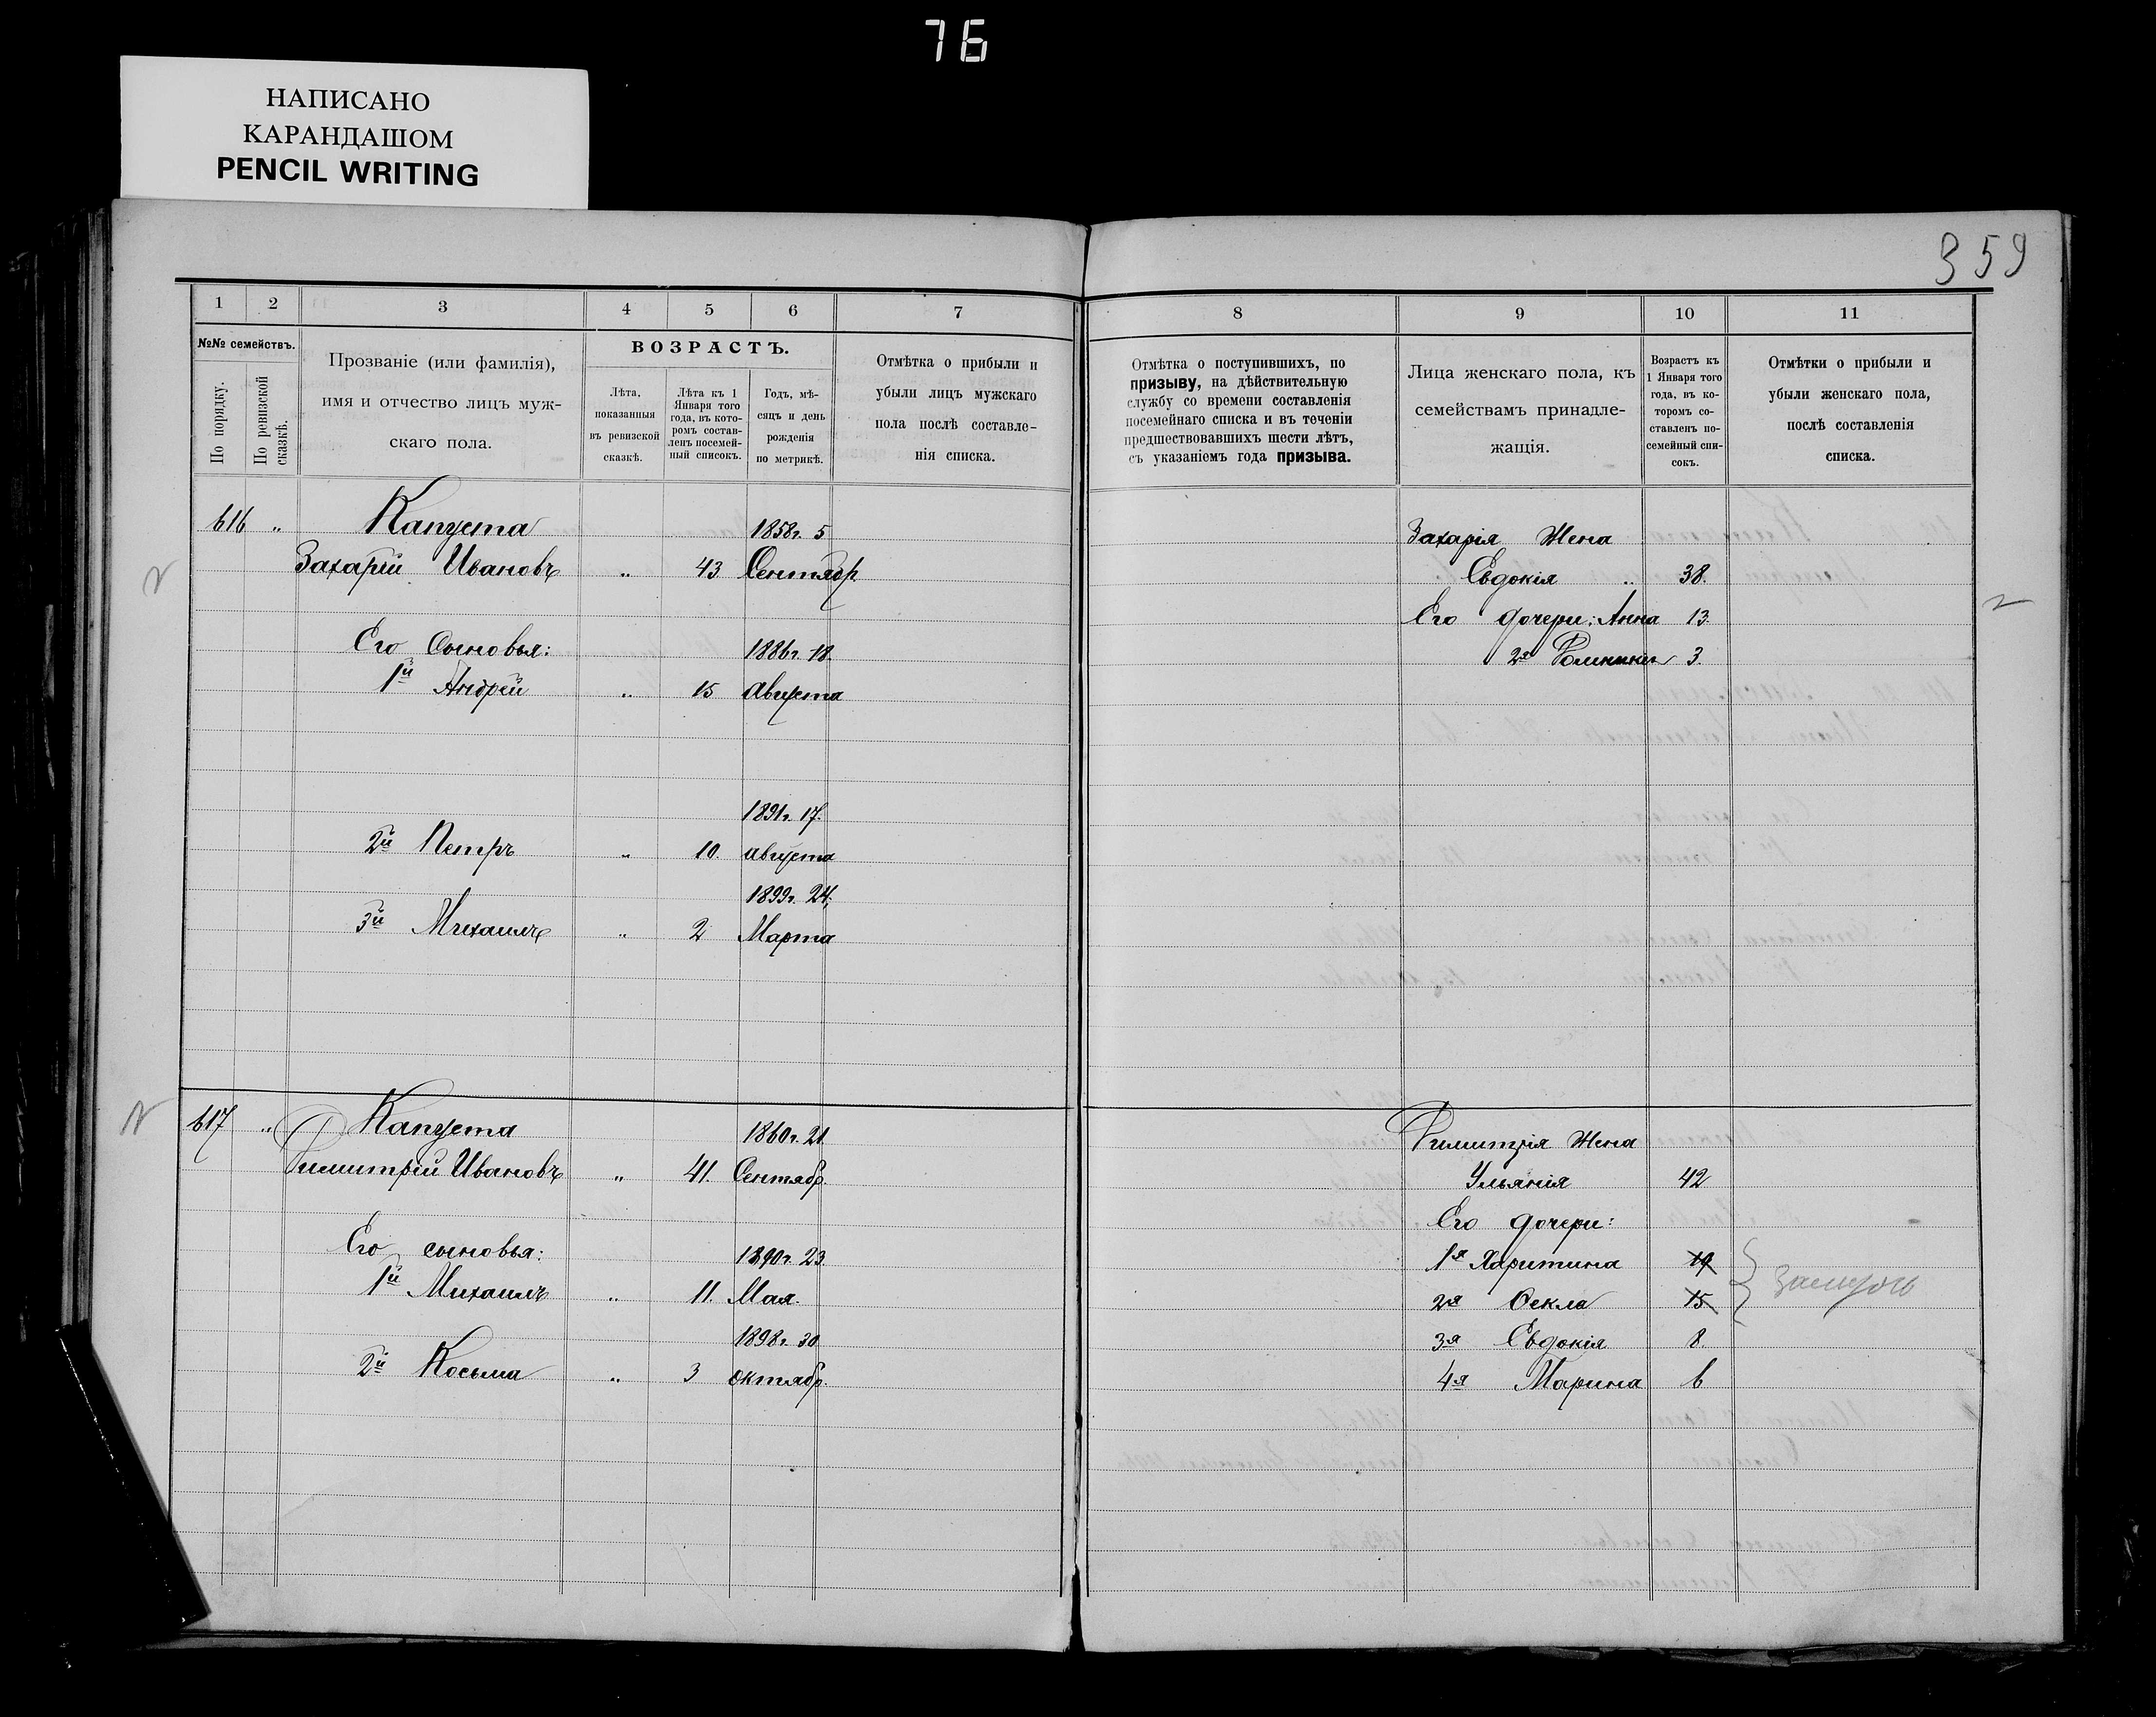 76
НАПИСАНО
КАРАНДАШОМ
PENCIL WRITING
359
1 2 3 4 5 6 7
№№ семействъ.
По порядку.
По ревизской сказкѣ.
Прозваніе (или фамилія),
имя и отчество лицъ муж-
скаго пола.
ВОЗРАСТЪ.
Лѣта,
показанныя
въ ревизской
сказкѣ.
Лѣта къ 1
Января того
года, въ кото-
ромъ состав-
ленъ посемей-
ный списокъ.
Годъ, мѣ-
сяцъ и день
рожденія
по метрикѣ.
Отмѣтка о прибыли и
убыли лицъ мужскаго
пола послѣ составле-
нія списка.
616 „ Капуста 1858г. 5
Захарій Ивановъ „ 43 Сентябр
Его Сыновья: 1886г. 18.
1й Андрей „ 15 Августа
1891г. 17.
2й Петръ „ 10. августа
1899г. 24.
3й Михаилъ „ 2 Марта
617 „ Капуста 1860г. 21
Димитрій Ивановъ „ 41. Сентябр.
Его сыновья: 1890г. 23.
1й Михаилъ „ 11. Мая.
1898г. 30
2й Косьма „ 3 октябр.
8 9 10 11
Отмѣтка о поступившихъ, по
призыву, на дѣйствительную
службу со времени составленія
посемейнаго списка и въ теченіи
предшествовавшихъ шести лѣтъ,
съ указаніемъ года призыва.
Лица женскаго пола, къ
семействамъ принадле-
жащія.
Возрастъ къ
1 Января того
года, въ ко-
торомъ со-
ставленъ по-
семейный спи-
сокъ.
Отмѣтки о прибыли и
убыли женскаго пола,
послѣ составленія
списка.
Захарія Жена
Евдокія „ 38.
Его дочери: Анна 13.
2я 3.
Димитрія Жена
Ульянія 42
Его дочери:
1я Харитина 19
2я Ѳекла 15
замужъ
3я Евдокія 8.
4я Марина 6